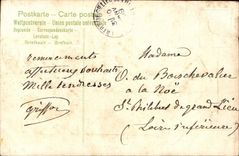 Postkarte – Carte postale
Weltpostverein – Union postale universelle
Dopisnice – Correspondenzkarte
Levelezö-Lap
Briefkaart – Brefkort
Madame
remerciements
affectueux souhaits
Mille tendresses
O. du Boischevalier
à la Noë
griffon
St Philbert de grand Lieu
(Loire Inférieure)